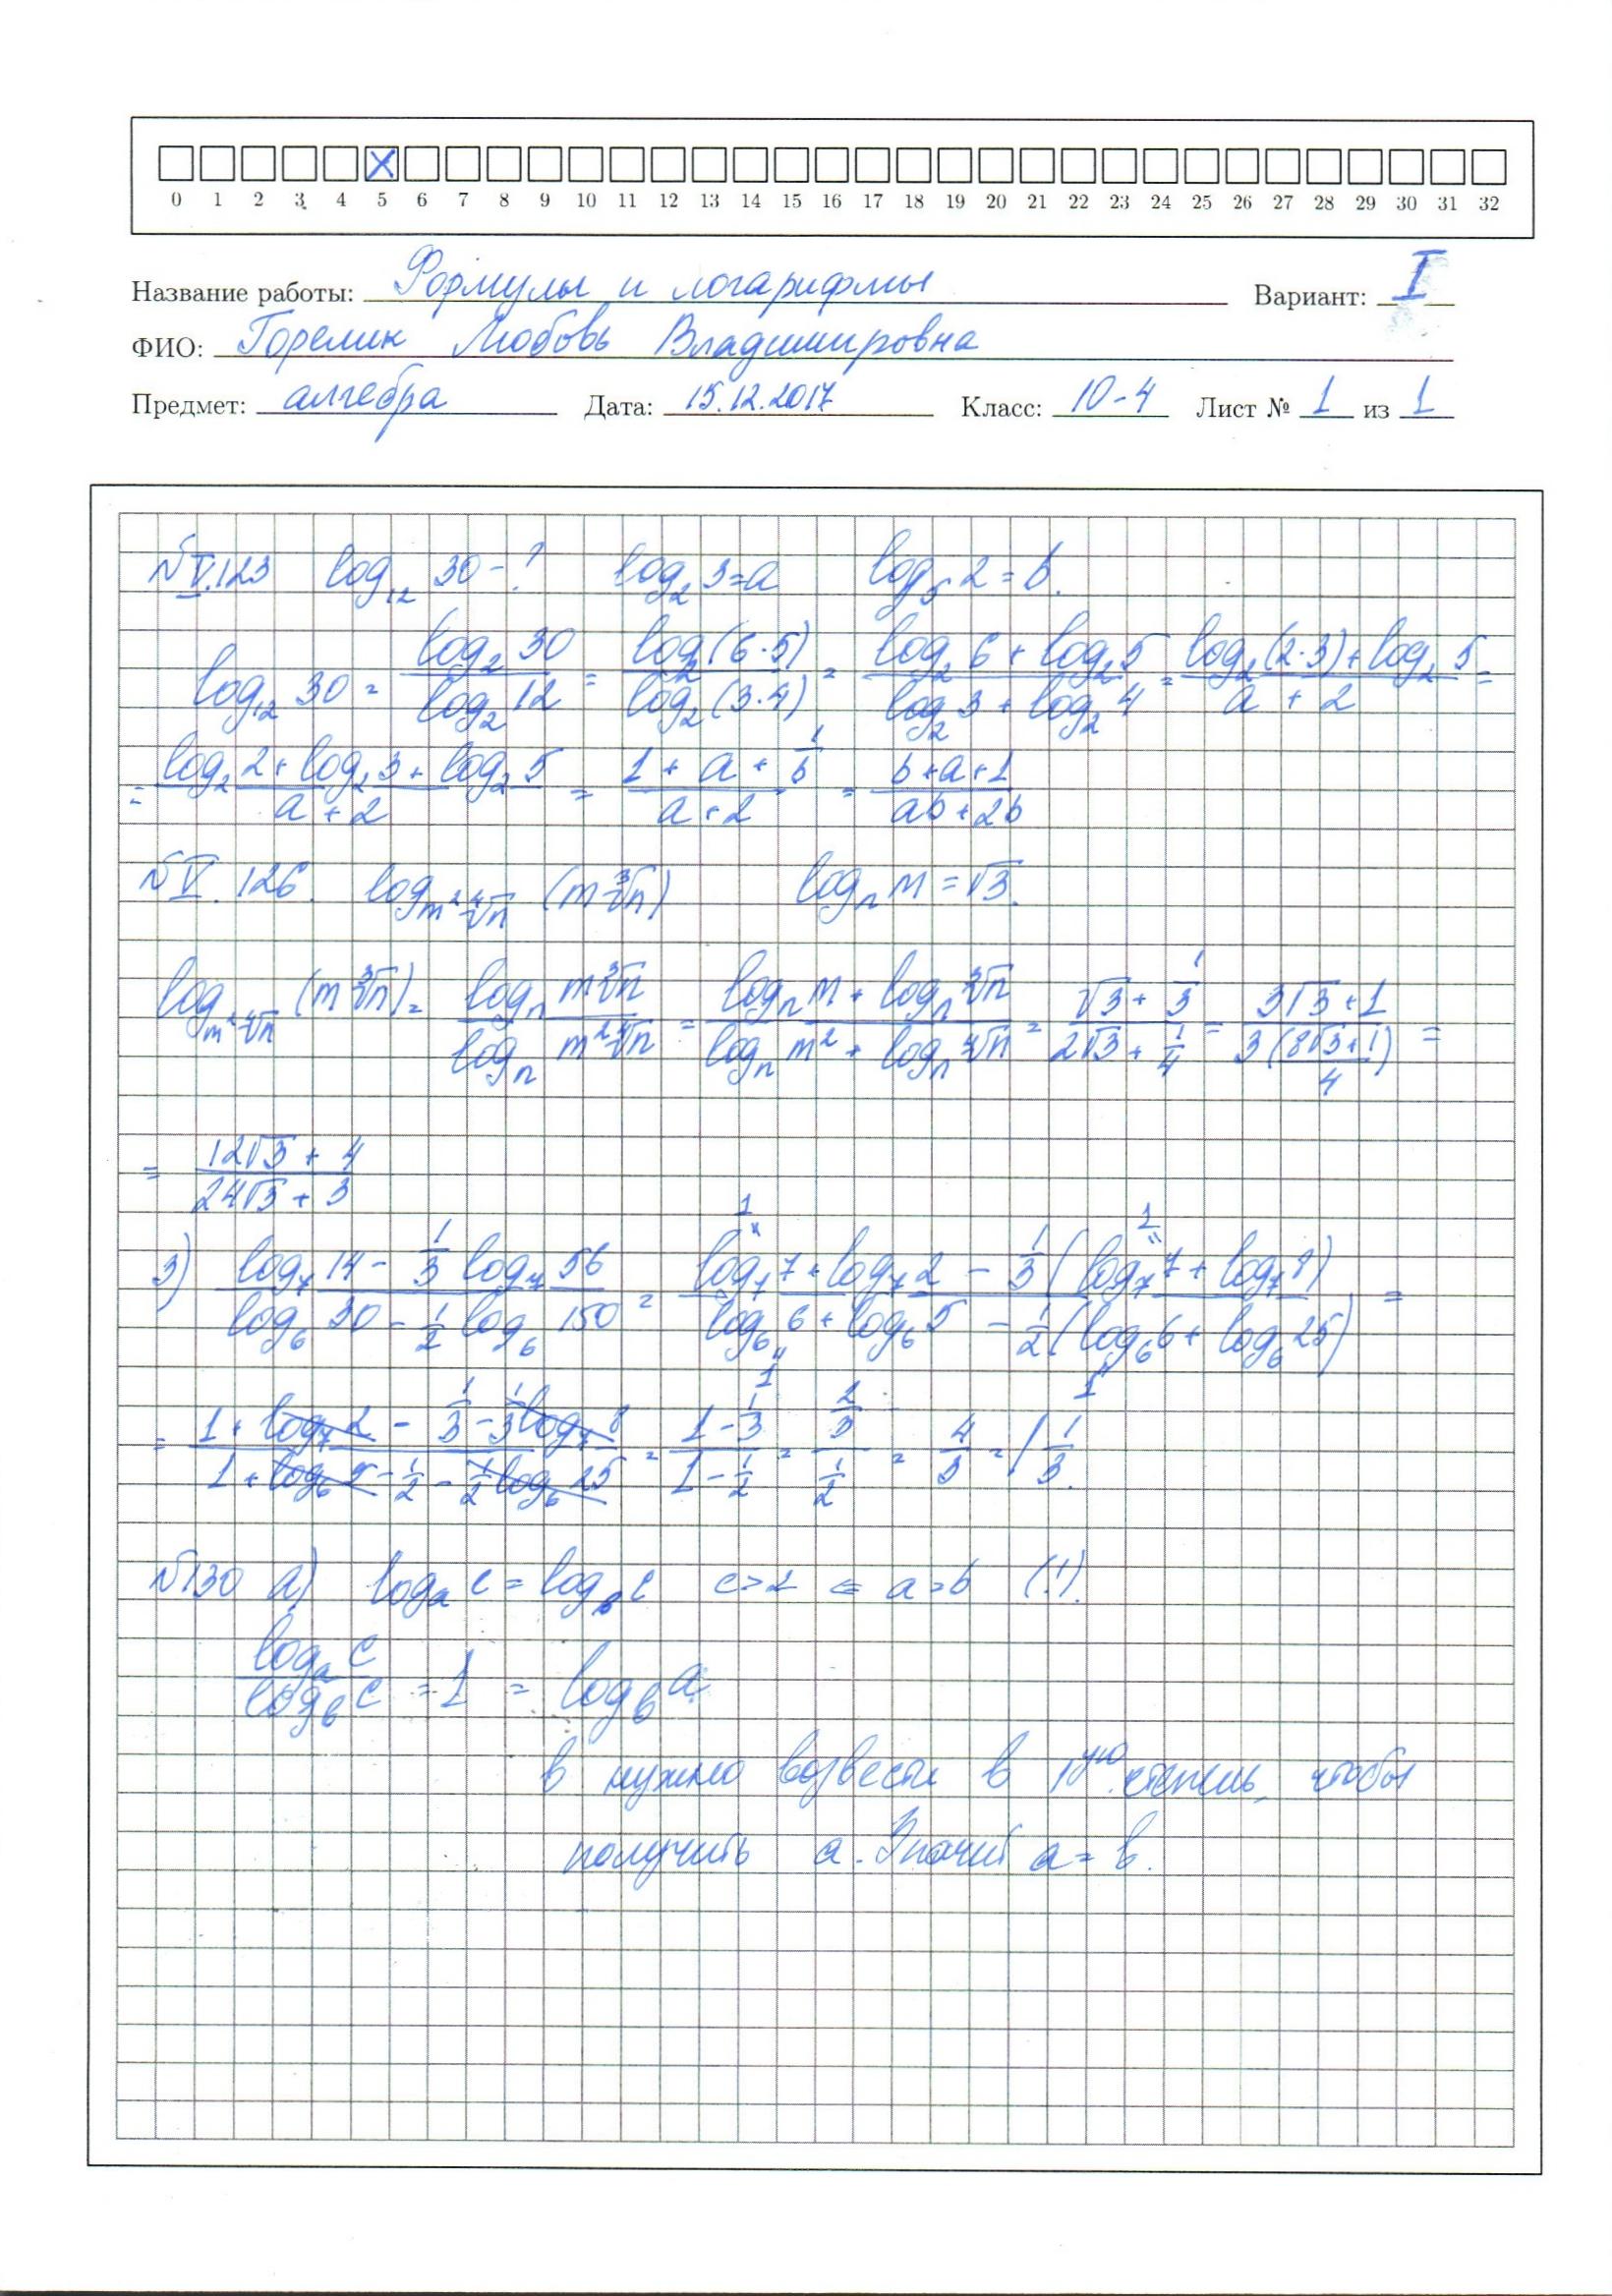 0 1 2 3 4 5 6 7 8 9 10 11 12 13 14 15 16 17 18 19 20 21 22 23 24 25 26 27 28 29 30 31 32
Название работы: Формулы и логарифмы Вариант: I
ФИО: Горелик Любовь Владимировна
Предмет: алгебра Дата: 15.12.2017 Класс: 10-4 Лист № 1 из 1
№V.123 log₁₂ 30 - ? log₂ 3 = a log₅ 2 = b.
log₁₂ 30 = (log₂ 30)/(log₂ 12) = (log₂(6·5))/(log₂(3·4)) = (log₂ 6 + log₂ 5)/(log₂ 3 + log₂ 4) = (log₂(2·3) + log₂ 5)/(a + 2) =
= (log₂ 2 + log₂ 3 + log₂ 5)/(a + 2) = (1 + a + 1/b)/(a + 2) = (b + a + 1)/(ab + 2b)
№V.126. log_{m²∜n} (m∛n) logₙ m = √3.
log_{m²∜n} (m∛n) = (logₙ m∛n)/(logₙ m²∜n) = (logₙ m + logₙ ∛n)/(logₙ m² + logₙ ∜n) = (√3 + 1/3)/(2√3 + 1/4) = (3√3 + 1)/(3(8√3 + 1)/4) =
= (12√3 + 4)/(24√3 + 3)
3) (log₇ 14 - 1/3 log₇ 56)/(log₆ 30 - 1/2 log₆ 150) = (log₇ 7 + log₇ 2 - 1/3(log₇ 7 + log₇ 8))/(log₆ 6 + log₆ 5 - 1/2(log₆ 6 + log₆ 25)) =
= (1 + log₇ 2 - 1/3 - 1/3 log₇ 8)/(1 + log₆ 5 - 1/2 - 1/2 log₆ 25) = (1 - 1/3)/(1 - 1/2) = (2/3)/(1/2) = 4/3 = 1 1/3.
№130 a) logₐ c = log_b c c>2 ⇐ a=b (!).
(logₐ c)/(log_b c) = 1 = log_b a
в нужно возвести в 1ую степень, чтобы
получить a. Значит a = b.